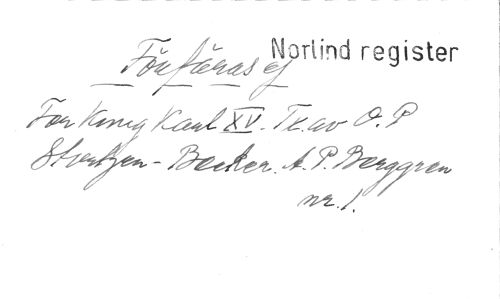 Förfäras ej Norlind register
For Kung Karl XV. Tx. av O. P
Sturtzen-Becker. A. P. Berggren
nr. 1.